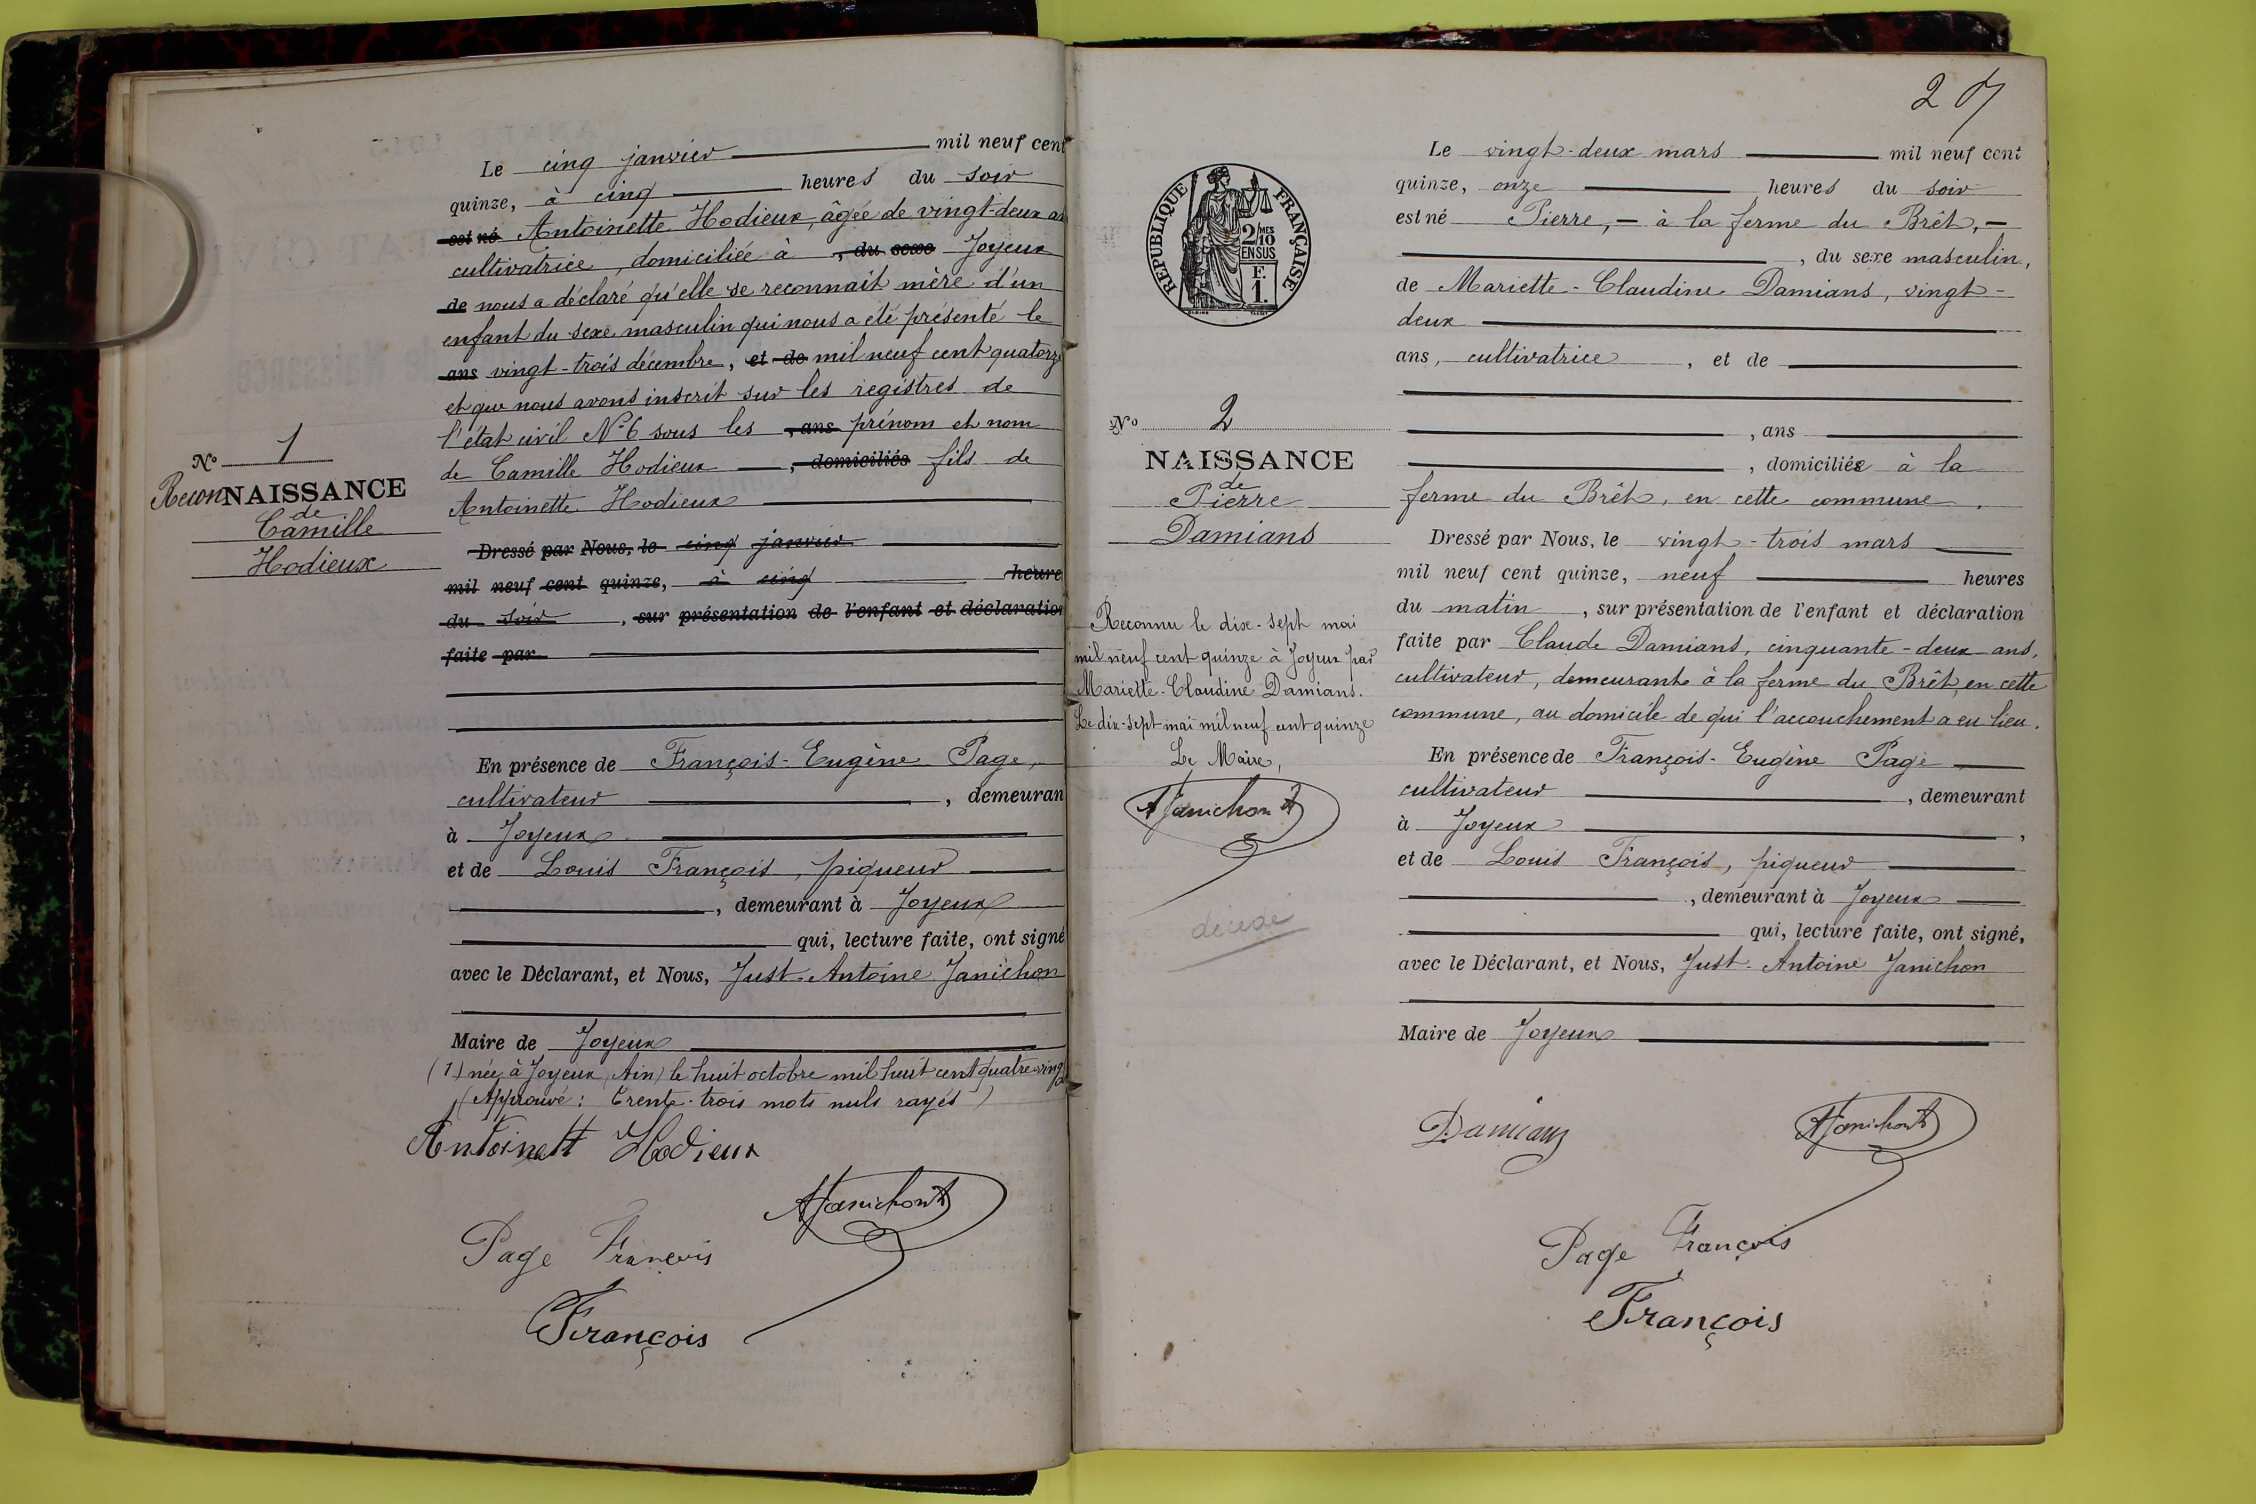 Le cinq janvier mil neuf cent
quinze, à cinq heures du soir
est né Antoinette Hodieux, âgée de vingt-deux ans
cultivatrice, domiciliée à , du sexe Joyeux
de nous a déclaré qu'elle se reconnait mère d'un
enfant du sexe masculin qui nous a été présenté le
ans vingt-trois décembre, et de mil neuf cent quatorze
et que nous avons inscrit sur les registres de
l'état civil N° 6 sous les , ans prénom et nom
de Camille Hodieux , domiciliés fils de
Antoinette Hodieux
Dressé par Nous, le cinq janvier
mil neuf cent quinze, à cinq heure
du soir , sur présentation de l'enfant et déclaration
faite par
En présence de François-Eugène Page,
cultivateur , demeuran
à Joyeux
et de Louis François, piqueur
, demeurant à Joyeux
qui, lecture faite, ont signé
avec le Déclarant, et Nous, Just-Antoine Janichon
Maire de Joyeux
(1) née à Joyeux (Ain) le huit octobre mil huit cent quatre-ving
(Approuvé : Trente-trois mots nuls rayés)
Antoinett Hodieux
AJanichon
Page Francois
François
N° 1
ReconNAISSANCE
de
Camille
Hodieux
27
REPUBLIQUE FRANÇAISE
2/10 MES
EN SUS
F.
1.
N° 2
NAISSANCE
de
Pierre
Damians
Reconnu le dix-sept mai
mil neuf cent quinze à Joyeux par
Mariette-Claudine Damians.
Le dix-sept mai mil neuf cent quinze
Le Maire,
AJanichon
décédé
Le vingt-deux mars mil neuf cent
quinze, onze heures du soir
est né Pierre, à la ferme du Brêt,
, du sexe masculin,
de Mariette-Claudine Damians, vingt-
deux
ans, cultivatrice , et de
, ans
, domiciliée à la
ferme du Brêt, en cette commune.
Dressé par Nous, le vingt-trois mars
mil neuf cent quinze, neuf heures
du matin , sur présentation de l'enfant et déclaration
faite par Claude Damians, cinquante-deux ans,
cultivateur, demeurant à la ferme du Brêt, en cette
commune, au domicile de qui l'accouchement a eu lieu.
En présence de François-Eugène Page
cultivateur , demeurant
à Joyeux ,
et de Louis François, piqueur
, demeurant à Joyeux
qui, lecture faite, ont signé,
avec le Déclarant, et Nous, Just-Antoine Janichon
Maire de Joyeux
Damians
AJanichon
Page François
François